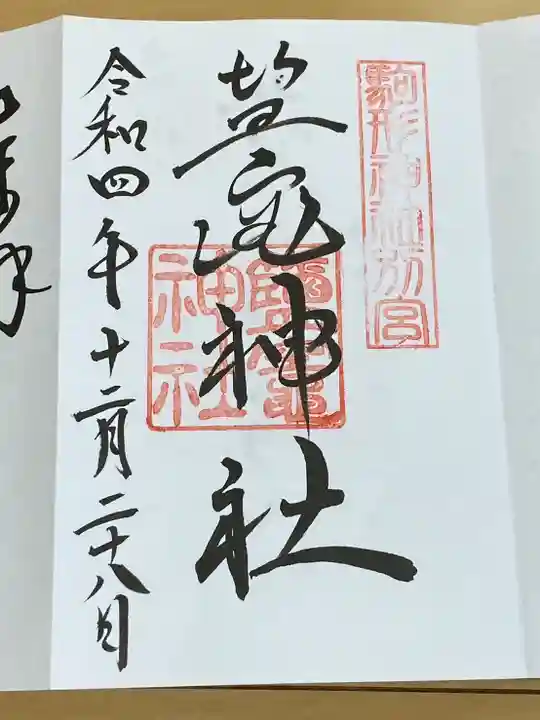 駒形神社別宮
塩竈神社
鹽竈神社
令和四年十二月二十八日
奉拝